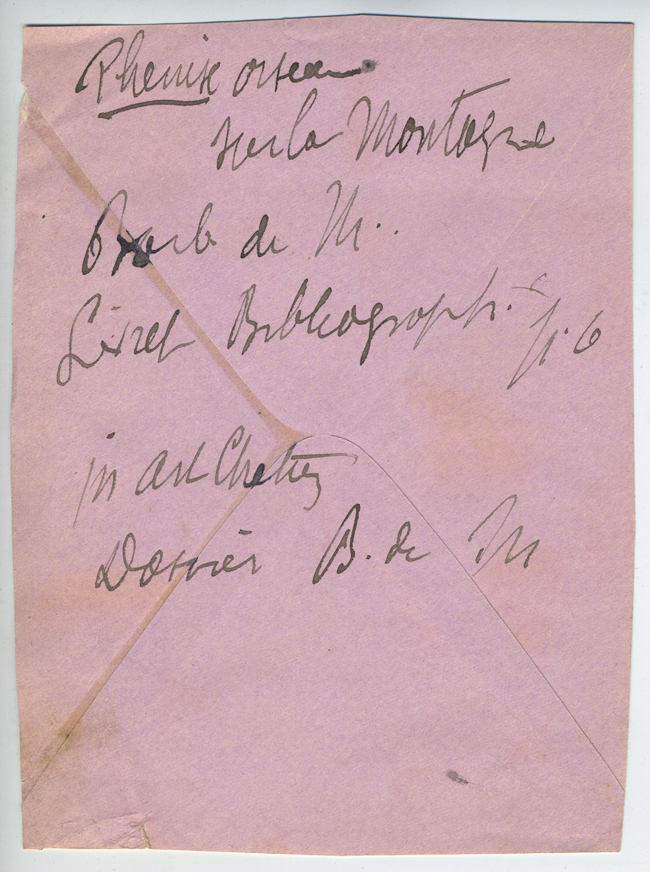 Phenix oiseau
sur la Montagne
de M..
Livret Bibliograph. p. 6
in art Chrétien
Dossier B. de M